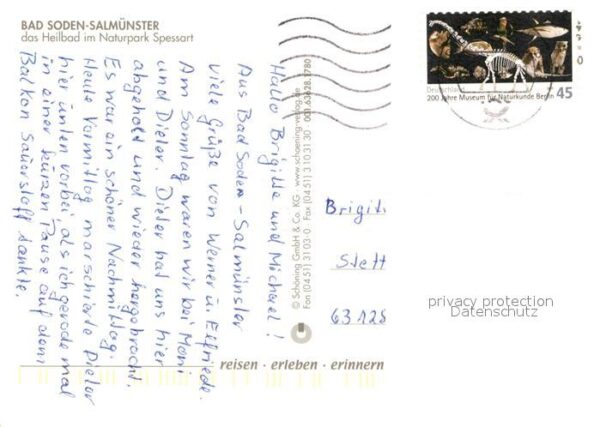 BAD SODEN-SALMÜNSTER
das Heilbad im Naturpark Spessart
Hallo Brigitte und Michael!
Aus Bad Soden-Salmünster
viele Grüße von Werner u. Elfriede.
Am Sonntag waren wir bei Moni
und Dieter. Dieter hat uns hier
abgeholt und wieder hergebracht.
Es war ein schöner Nachmittag.
Heute Vormittag marschierte Dieter
hier unten vorbei, als ich gerade mal
in einer kurzen Pause auf dem
Balkon Sauerstoff tankte.
© Schöning GmbH & Co. KG · www.schoening-verlag.de
Fon (04 51) 3 10 3-0 · Fax (04 51) 3 10 31 30
reisen · erleben · erinnern
Deutschland
200 Jahre Museum für Naturkunde Berlin
45
Brigit
Stett
63128
privacy protection
Datenschutz